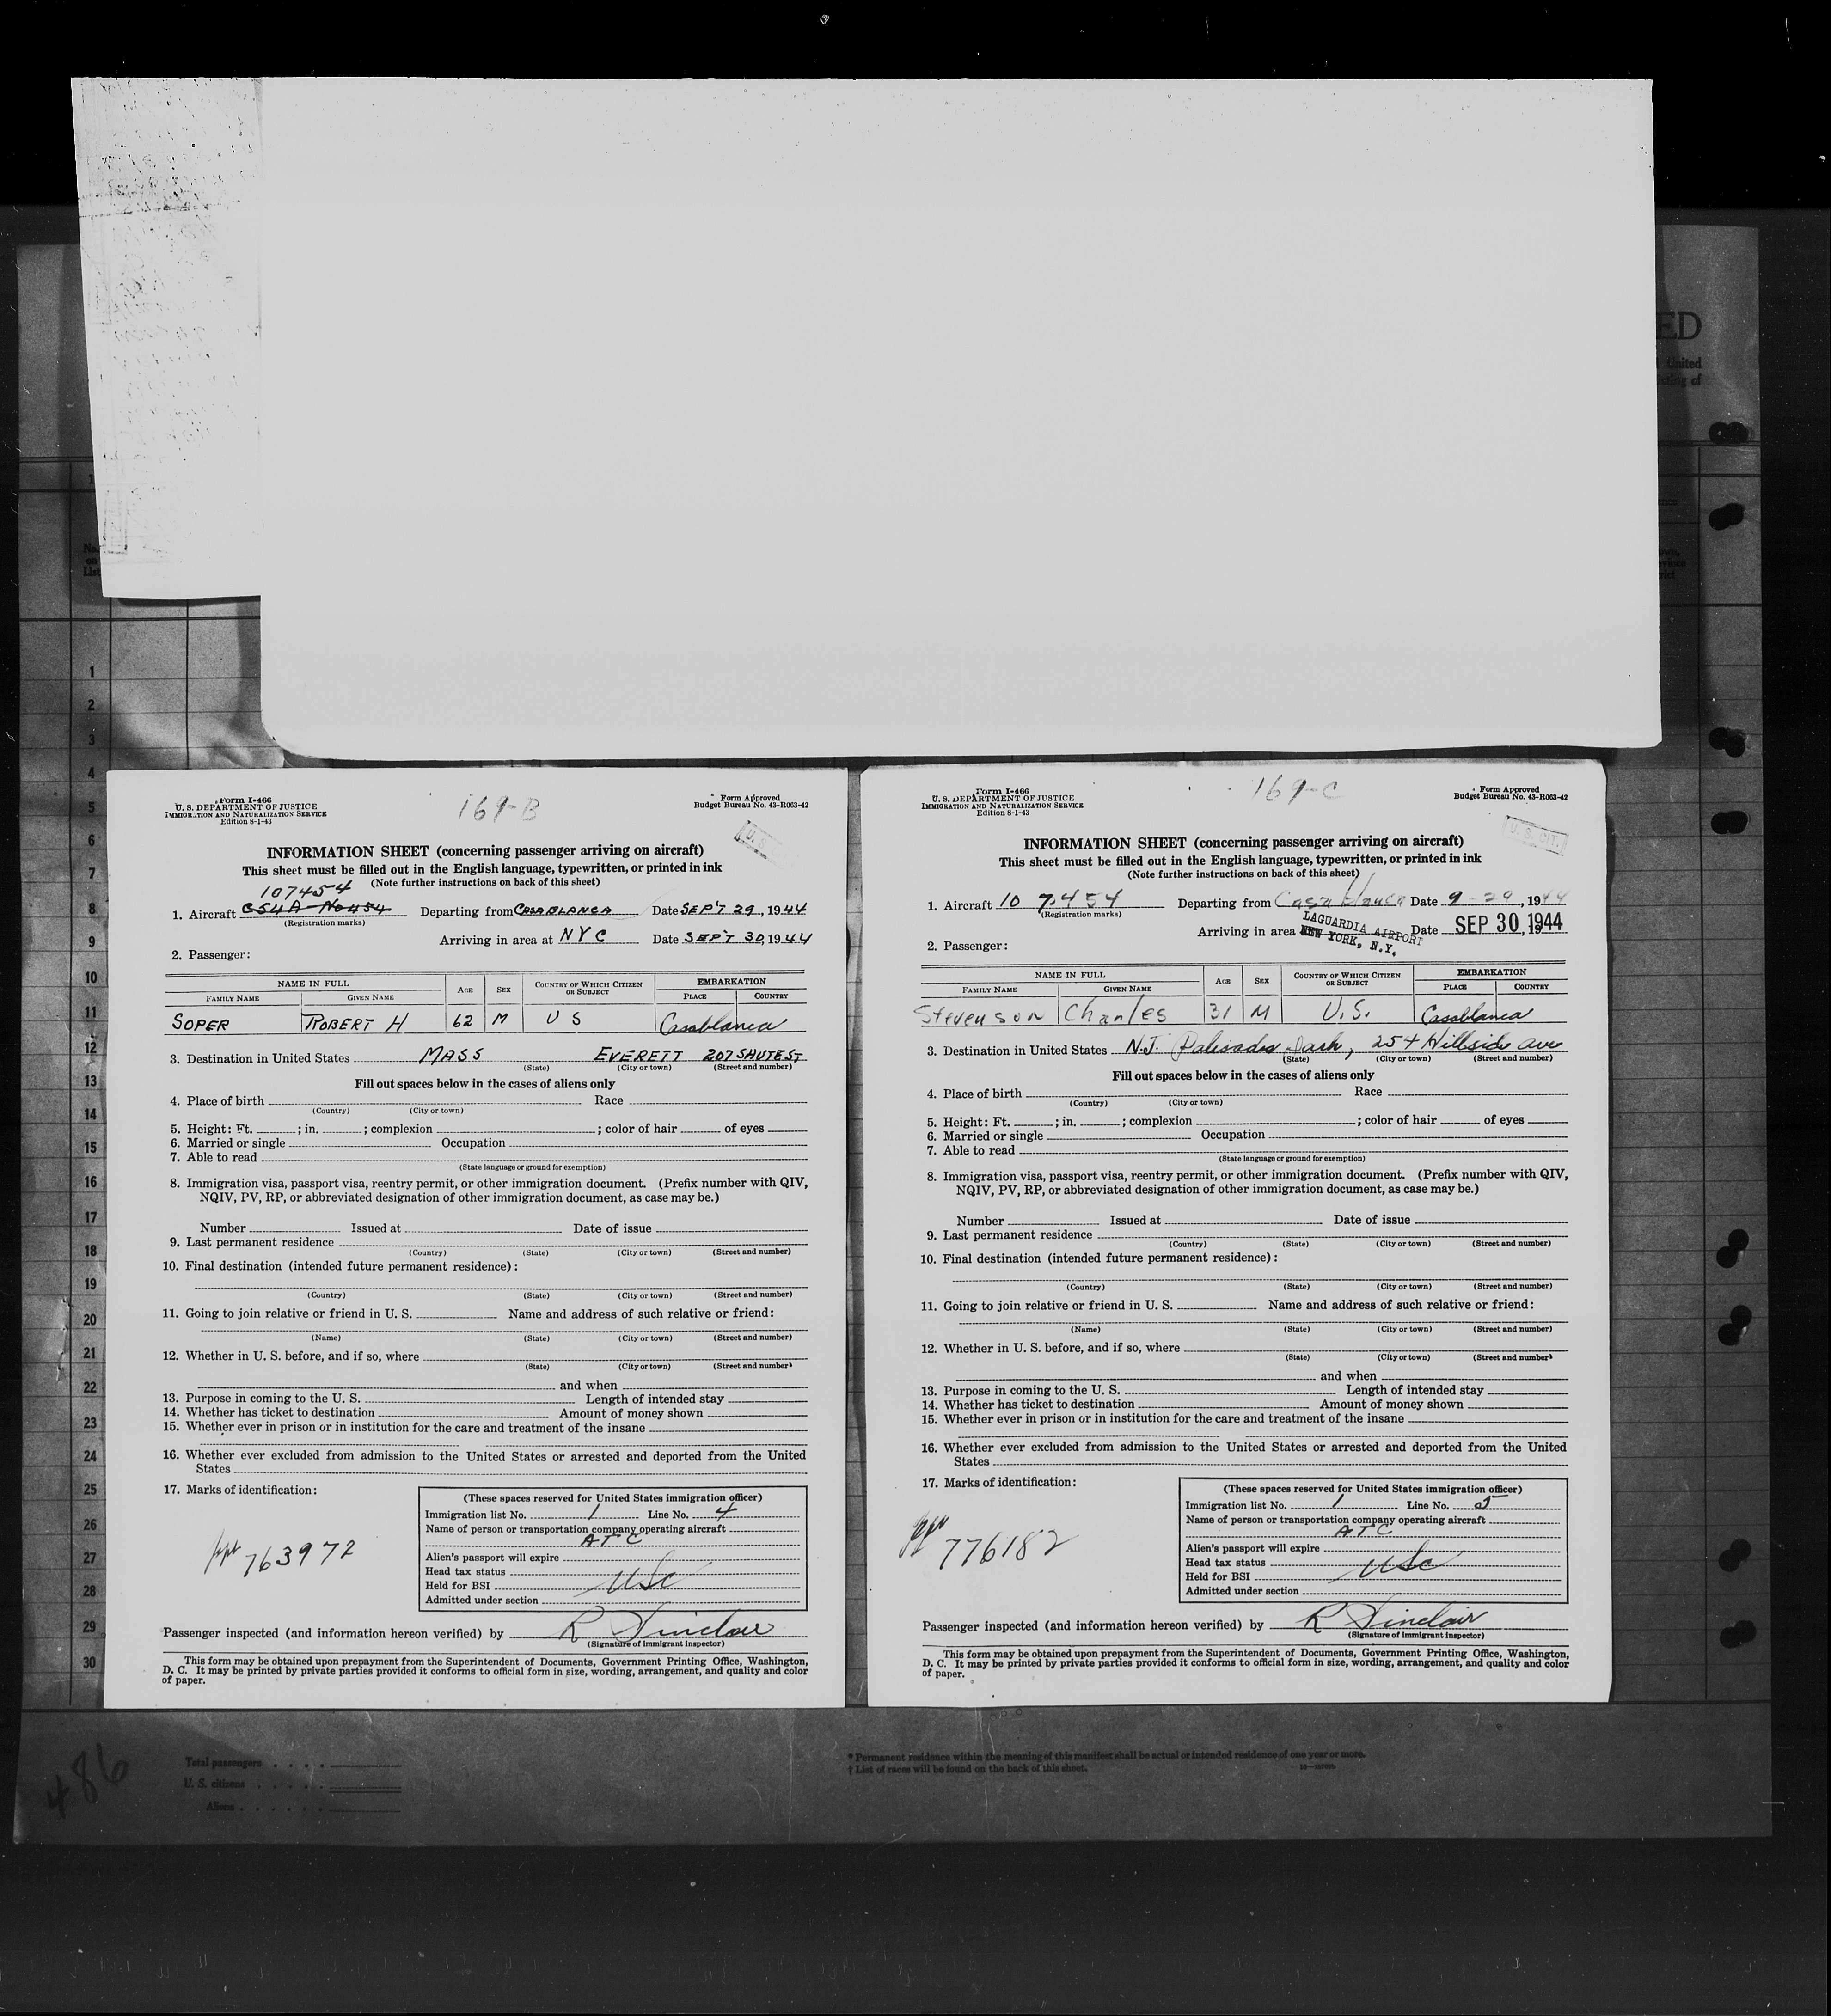 ED
United
isting of
No.
on
List
1
2
3
4
5
6
7
8
9
10
11
12
13
14
15
16
17
18
19
20
21
22
23
24
25
26
27
28
29
30
Form I-466
U. S. DEPARTMENT OF JUSTICE
IMMIGRATION AND NATURALIZATION SERVICE
Edition 8-1-43
169-B
Form Approved
Budget Bureau No. 43-R063-42
U. S.
INFORMATION SHEET (concerning passenger arriving on aircraft)
This sheet must be filled out in the English language, typewritten, or printed in ink
(Note further instructions on back of this sheet)
107454
1. Aircraft C54A-No454 Departing from CASABLANCA Date SEPT 29, 1944
(Registration marks)
Arriving in area at NYC Date SEPT 30, 1944
2. Passenger:
NAME IN FULL AGE SEX COUNTRY OF WHICH CITIZEN OR SUBJECT EMBARKATION
FAMILY NAME GIVEN NAME PLACE COUNTRY
SOPER ROBERT H 62 M U S Casablanca
3. Destination in United States MASS EVERETT 207
(State) (City or town) (Street and number)
Fill out spaces below in the cases of aliens only
4. Place of birth Race
(Country) (City or town)
5. Height: Ft. ; in. ; complexion ; color of hair of eyes
6. Married or single Occupation
7. Able to read
(State language or ground for exemption)
8. Immigration visa, passport visa, reentry permit, or other immigration document. (Prefix number with QIV,
NQIV, PV, RP, or abbreviated designation of other immigration document, as case may be.)
Number Issued at Date of issue
9. Last permanent residence
(Country) (State) (City or town) (Street and number)
10. Final destination (intended future permanent residence):
(Country) (State) (City or town) (Street and number)
11. Going to join relative or friend in U. S. Name and address of such relative or friend:
(Name) (State) (City or town) (Street and number)
12. Whether in U. S. before, and if so, where
(State) (City or town) (Street and number)
and when
13. Purpose in coming to the U. S. Length of intended stay
14. Whether has ticket to destination Amount of money shown
15. Whether ever in prison or in institution for the care and treatment of the insane
16. Whether ever excluded from admission to the United States or arrested and deported from the United
States
17. Marks of identification:
ppt 763972
(These spaces reserved for United States immigration officer)
Immigration list No. 1 Line No. 4
Name of person or transportation company operating aircraft
ATC
Alien's passport will expire
Head tax status
Held for BSI USC
Admitted under section
Passenger inspected (and information hereon verified) by R Sinclair
(Signature of immigrant inspector)
This form may be obtained upon prepayment from the Superintendent of Documents, Government Printing Office, Washington,
D. C. It may be printed by private parties provided it conforms to official form in size, wording, arrangement, and quality and color
of paper.
Form I-466
U. S. DEPARTMENT OF JUSTICE
IMMIGRATION AND NATURALIZATION SERVICE
Edition 8-1-43
169-C
Form Approved
Budget Bureau No. 43-R063-42
U. S. CIT.
INFORMATION SHEET (concerning passenger arriving on aircraft)
This sheet must be filled out in the English language, typewritten, or printed in ink
(Note further instructions on back of this sheet)
1. Aircraft 10 7454 Departing from Casablanca Date 9-29, 1944
(Registration marks)
Arriving in area LAGUARDIA AIRPORT NEW YORK, N.Y. Date SEP 30, 1944
2. Passenger:
NAME IN FULL AGE SEX COUNTRY OF WHICH CITIZEN OR SUBJECT EMBARKATION
FAMILY NAME GIVEN NAME PLACE COUNTRY
Stevenson Charles 31 M U.S. Casablanca
3. Destination in United States N.J. Palisades Park, 254 Hillside ave
(State) (City or town) (Street and number)
Fill out spaces below in the cases of aliens only
4. Place of birth Race
(Country) (City or town)
5. Height: Ft. ; in. ; complexion ; color of hair of eyes
6. Married or single Occupation
7. Able to read
(State language or ground for exemption)
8. Immigration visa, passport visa, reentry permit, or other immigration document. (Prefix number with QIV,
NQIV, PV, RP, or abbreviated designation of other immigration document, as case may be.)
Number Issued at Date of issue
9. Last permanent residence
(Country) (State) (City or town) (Street and number)
10. Final destination (intended future permanent residence):
(Country) (State) (City or town) (Street and number)
11. Going to join relative or friend in U. S. Name and address of such relative or friend:
(Name) (State) (City or town) (Street and number)
12. Whether in U. S. before, and if so, where
(State) (City or town) (Street and number)
and when
13. Purpose in coming to the U. S. Length of intended stay
14. Whether has ticket to destination Amount of money shown
15. Whether ever in prison or in institution for the care and treatment of the insane
16. Whether ever excluded from admission to the United States or arrested and deported from the United
States
17. Marks of identification:
ppt 776182
(These spaces reserved for United States immigration officer)
Immigration list No. 1 Line No. 5
Name of person or transportation company operating aircraft
ATC
Alien's passport will expire
Head tax status
Held for BSI USC
Admitted under section
Passenger inspected (and information hereon verified) by R Sinclair
(Signature of immigrant inspector)
This form may be obtained upon prepayment from the Superintendent of Documents, Government Printing Office, Washington,
D. C. It may be printed by private parties provided it conforms to official form in size, wording, arrangement, and quality and color
of paper.
486
Total passengers
U. S. citizens
Aliens
* Permanent residence within the meaning of this manifest shall be actual or intended residence of one year or more.
† List of races will be found on the back of this sheet.